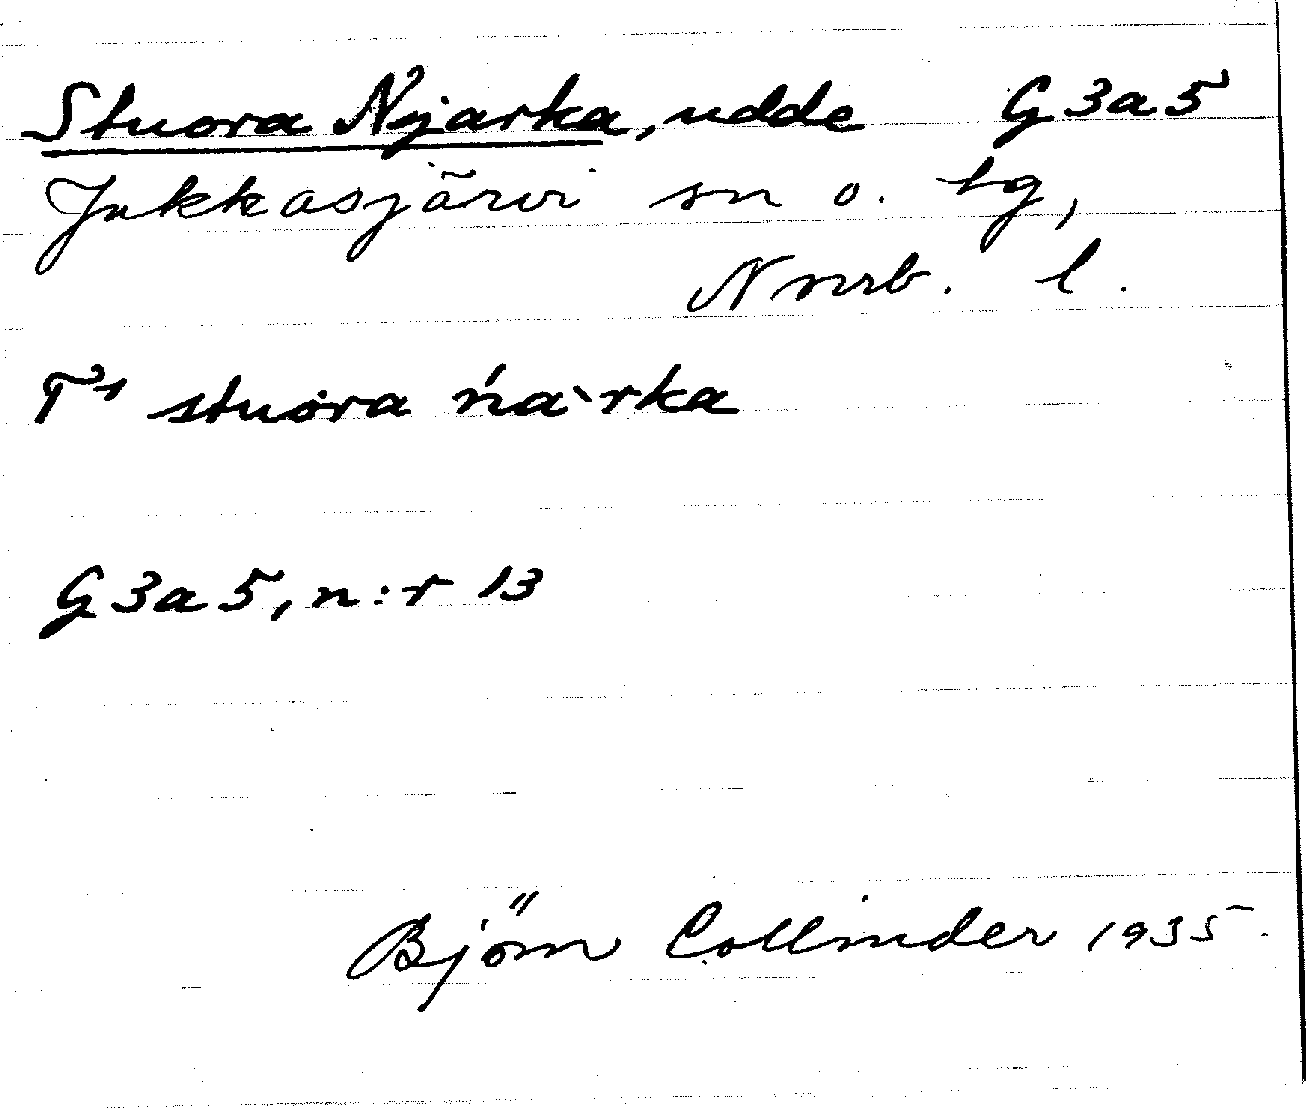 Stuora Njarka, udde G 3 a 5
Jukkasjärvi sn o. tg,
Nnrb. l.
T¹ stuȯra ńa`rka
G 3 a 5, n:r 13
Björn Collinder 1935.